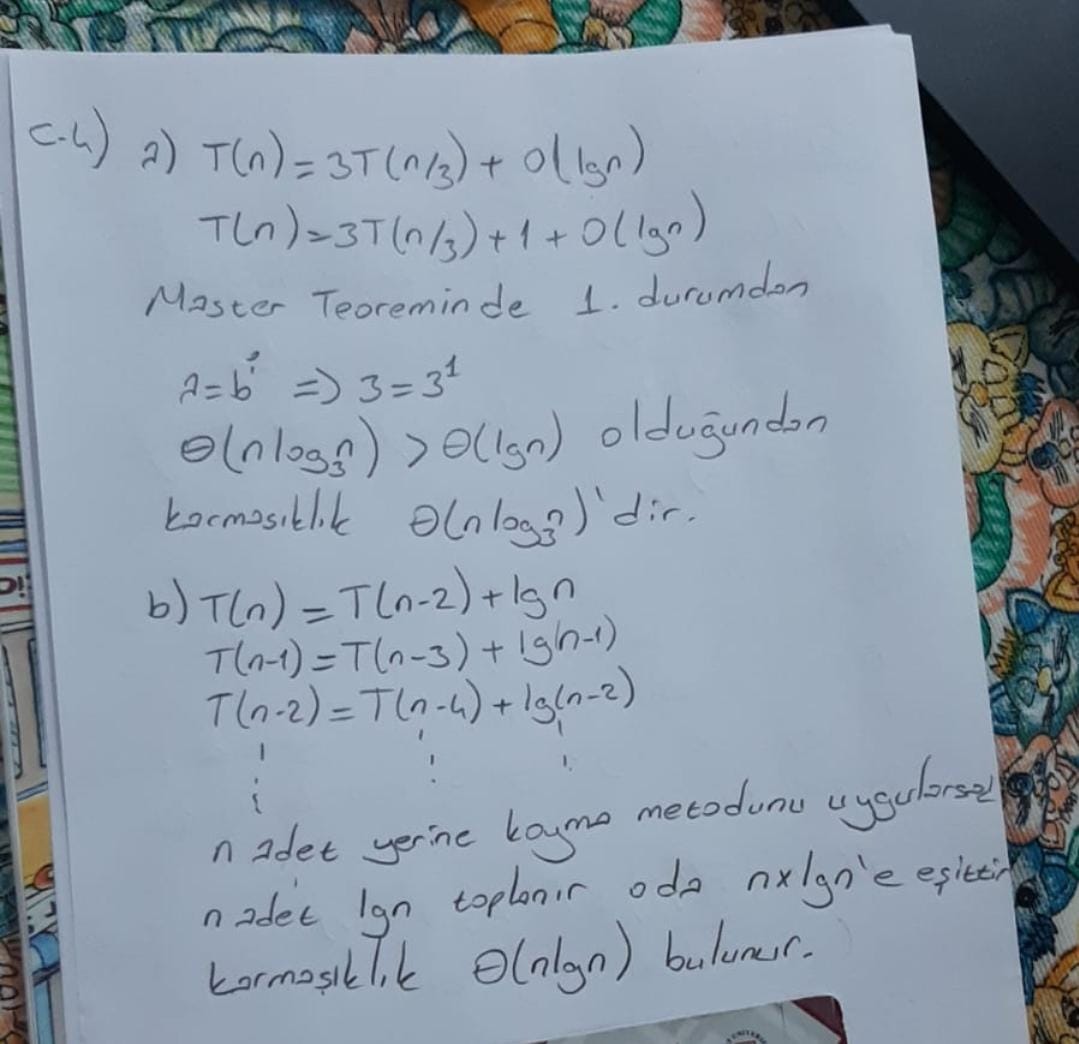 C-4) a) T(n) = 3T(n/3) + O(lgn)
T(n) = 3T(n/3) + 1 + O(lgn)
Master Teoreminde 1. durumdan
a = b^i => 3 = 3^1
Θ(nlog₃n) > Θ(lgn) olduğundan
karmasıklık Θ(nlog₃n)'dir.
b) T(n) = T(n-2) + lgn
T(n-1) = T(n-3) + lg(n-1)
T(n-2) = T(n-4) + lg(n-2)
n adet yerine koyma metodunu uygularsa
n adet lgn toplanır oda nxlgn'e eşittir
karmaşıklık Θ(nlgn) bulunur.